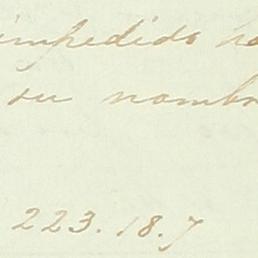 impedido
su nombr
223.18.7